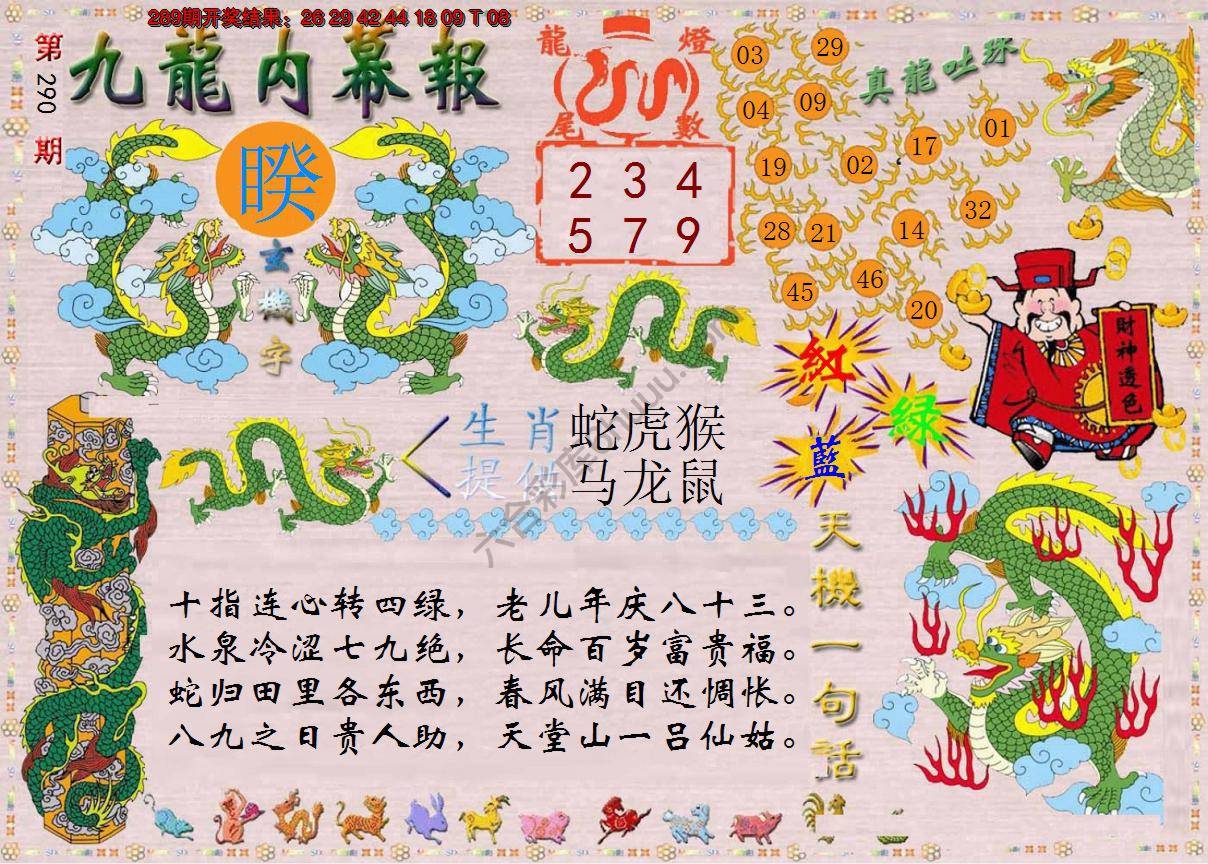 289期开奖结果：26 29 42 44 18 09 T 08
第290期
九龍内幕報
龍燈
尾數
2 3 4
5 7 9
真龍吐珠
03
29
04
09
17
01
19
02
28
21
14
32
45
46
20
睽
玄機字
財神透色
紅
绿
藍
生肖 蛇虎猴
提供 马龙鼠
天機一句話
十指连心转四绿，老儿年庆八十三。
水泉冷涩七九绝，长命百岁富贵福。
蛇归田里各东西，春风满目还惆怅。
八九之日贵人助，天堂山一吕仙姑。